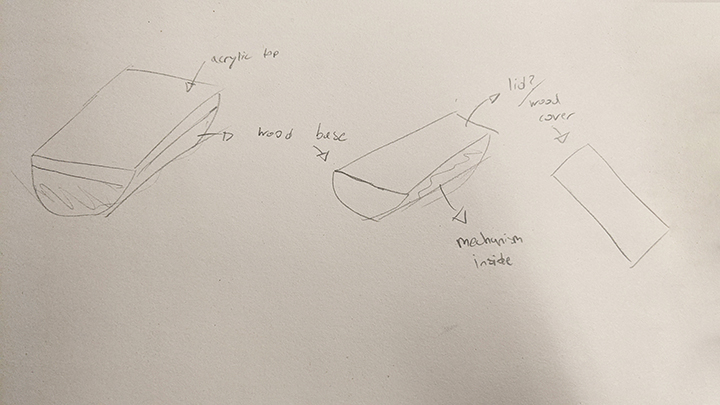 acrylic top
wood base
lid?/
wood
cover
mechanism
inside